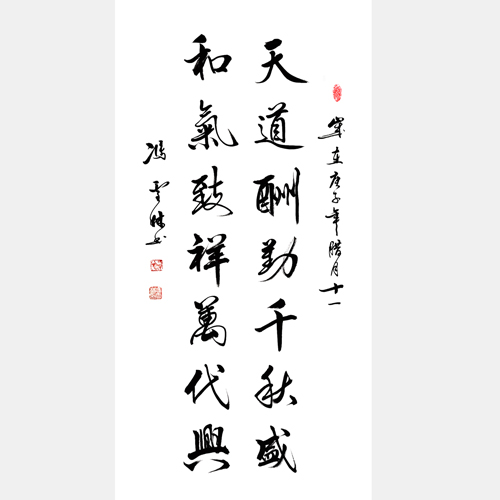 歲在庚子年腊月十一
天道酬勤千秋盛
和氣致祥萬代興
馮雪林书